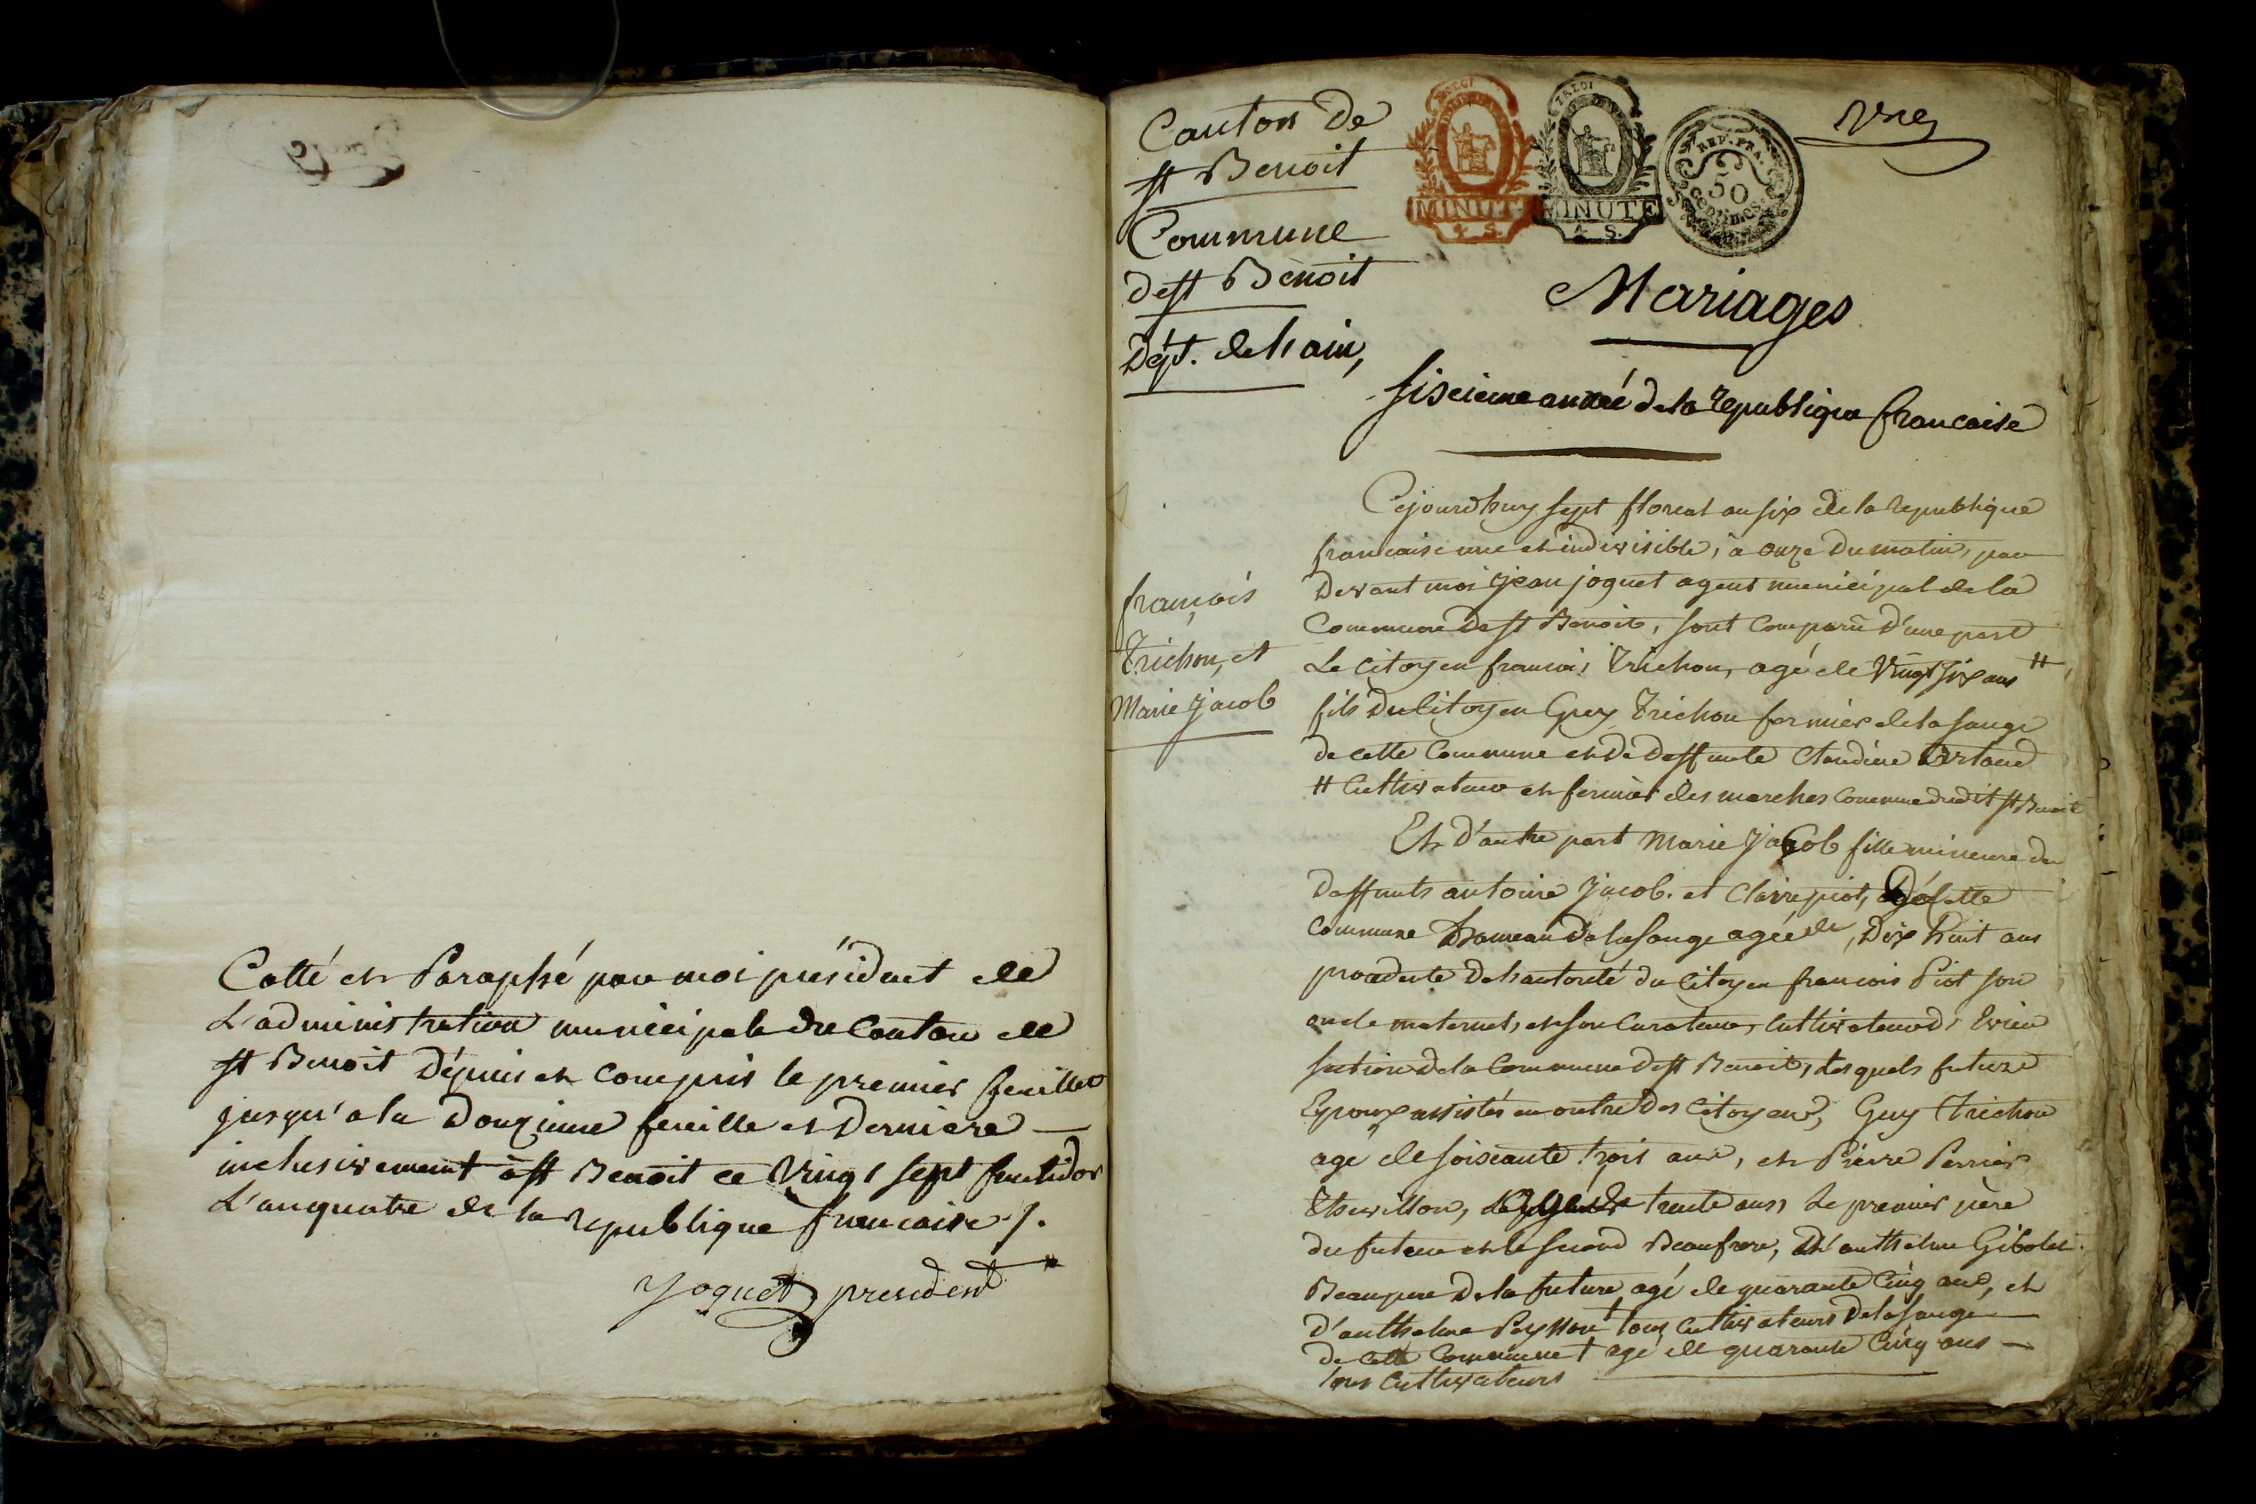 Cotté et Paraphé par moi président de
L'administration municipale du Canton de
st Benoit Dépuis et compris le premier feuillet
jusqu'a la Douzieme feuille et Derniere
inclusivement à st Benoit ce Vingt sept fructidor
L'an quatre de la republique francaise ./.
Joguet president
Canton De
st Benoit
Commune
De st Benoit
Dépt. de l'ain,
LA LOI
MINUTE
4 S.
LA LOI
MINUTE
4 S.
REP. FRA.
50
CENTIMES
Une
Mariages
sisieme année de la republique francaise
françois
Trichon, et
Marie Jacob
Cejourdhuy sept floreal an six de la republique
francaise une et indivisible, a onze du matin, par
Devant moi jean joguet agent municipal de la
Commune de st Benoit, sont comparu d'une part
Le citoyen francois Trichon, agé de Vingt six ans #
fils du Citoyen Guy Trichon fermier de la sauge
de cette Commune et de deffunte Claudine Artaud
# Cultivateur et fermier des marches commune dudit st Benoit
Et d'autre part Marie Jacob fille mineure de
deffunts antoine Jacob. et Claire piot, De cette
Commune hameau de la sauge agée de, Dix huit ans
procedante de l'autorité du Citoyen francois Piot son
oncle maternel, et son Curateur, Cultivateur d'Evieu
section de la Commune de st Benoit, Lesquels future
Epoux assistés en outre des citoyens, Guy Trichon
agé de soiscante trois ans, et Pierre Perrier
Thevillon, agé de trente ans, Le premier père
du futeur et le second Beaufrere, D'anthelme Gibolet
Beaupere de la future agé de quarante Cinq ans, et
D'anthelme Peysson † tous Cultivateurs de la sauge
de cette Commune † agé de quarante Cinq ans
tous Cultivateurs